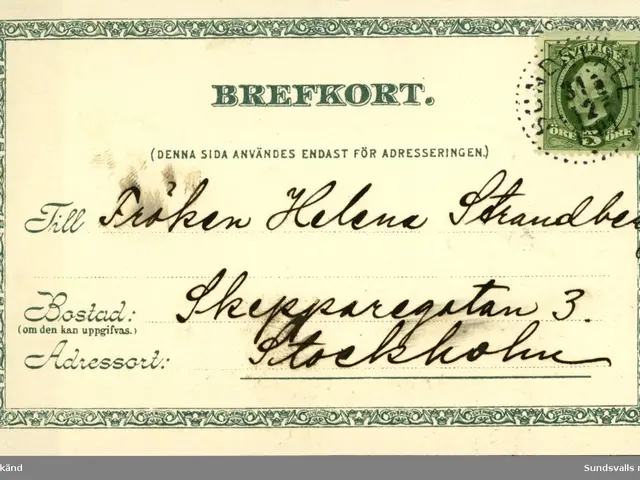 BREFKORT.
SVERIGE
SUNDSVALL
31
2
5
ÖRE ÖRE
(DENNA SIDA ANVÄNDES ENDAST FÖR ADRESSERINGEN.)
Till Fröken Helena Strandbe
Bostad: Skepparegatan 3.
(om den kan uppgifvas.)
Adressort: Stockholm
känd Sundsvalls m